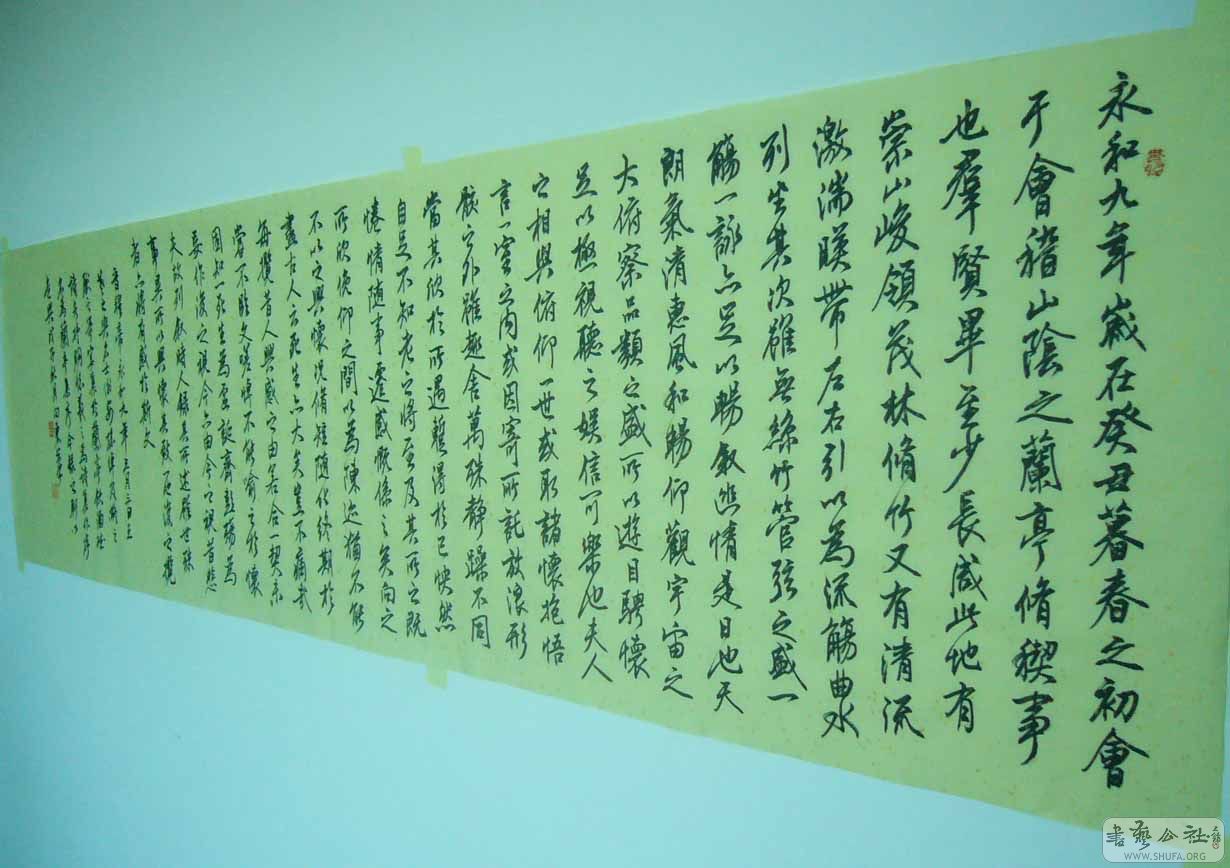 永和九年歲在癸丑暮春之初會
于會稽山陰之蘭亭脩稧事
也羣賢畢至少長咸此地有
崇山峻領茂林脩竹又有清流
激湍暎帶左右引以為流觴曲水
列坐其次雖無絲竹管弦之盛一
觴一詠亦足以暢敘幽情是日也天
朗氣清惠風和暢仰觀宇宙之
大俯察品類之盛所以遊目騁懷
足以極視聽之娛信可樂也夫人
之相與俯仰一世或取諸懷抱悟
言一室之內或因寄所託放浪形
骸之外雖趣舍萬殊靜躁不同
當其欣於所遇蹔得於己快然
自足不知老之將至及其所之既
惓情隨事遷感慨係之矣向之
所欣俛仰之間以為陳迹猶不能
不以之興懷況脩短隨化終期於
盡古人云死生亦大矣豈不痛哉
每攬昔人興感之由若合一契未
嘗不臨文嗟悼不能喻之於懷
固知一死生為虛誕齊彭殤為
妄作後之視今亦由今之視昔悲
夫故列敘時人錄其所述雖世殊
事異所以興懷其致一也後之攬
者亦將有感於斯文
永和九年三月三日王
書藝公社
WWW.SHUFA.ORG